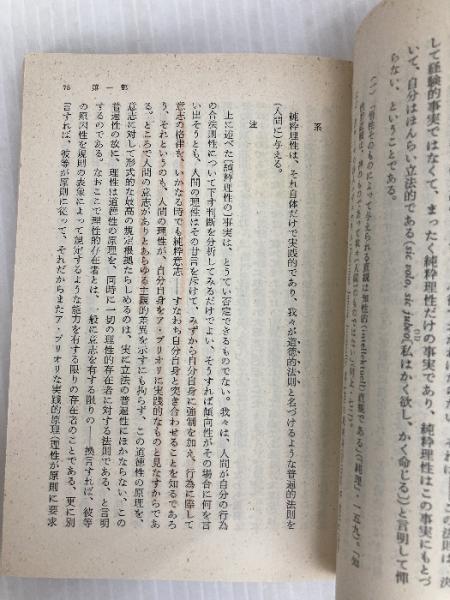 この法則は決
して経験的事実ではなくて、まったく純粋理性だけの事実であり、純粋理性はこの事実にもとづ
いて、自分はほんらい立法的である(sic volo, sic jubeo 私はかく欲し、かく命じる)と言明して憚
らない、ということである。
76 第一部
系
純粋理性は、それ自体だけで実践的であり、我々が道徳的法則と名づけるような普遍的法則を
(人間に)与える。
注
上に述べた(純粋理性の)事実は、とうてい否定できるものでない。我々は、人間が自分の行為
の合法則性について下す判断を分析してみるだけでよい、そうすれば傾向性がその場合に何を言
い出そうとも、人間の理性はその甘言を斥けて、みずから自分自身に強制を加え、行為に際して
意志の格律を、いかなる時でも純粋意志――すなわち自分自身と突き合わせることを知るであろ
う、それというのも、人間の理性が、自分自身をア・プリオリに実践的なものと見なすからであ
る。ところで人間の意志がありとあらゆる主観的差異を示すにも拘らず、この道徳性の原理を、
意志に対して形式的な最高の規定根拠たらしめるのは、実に立法の普遍性にほかならない、この
普遍性の故に、理性は道徳性の原理を、同時に一切の理性的存在者に対する法則である、と言明
するのである。なおここで理性的存在者とは、一般に意志を有する限りの――換言すれば、彼等
の原因性を規則の表象によって規定するような能力を有する限りの存在者のことである、更に別
言すれば、彼等が原則に従って、それだからまたア・プリオリな実践的原理(理性が原則に要求